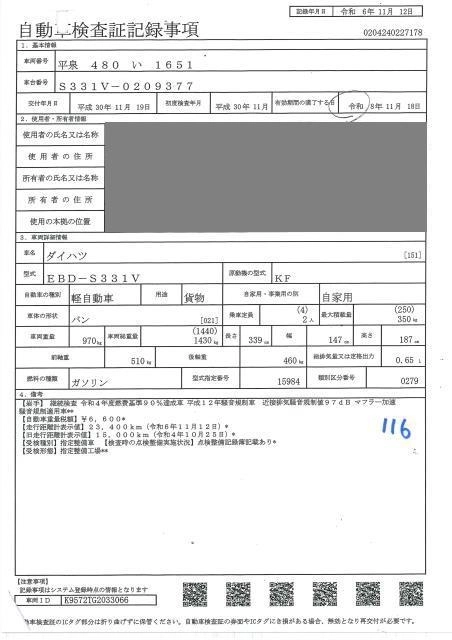 記録年月日 令和 6年11月 12日
自動車検査証記録事項
0204240227178
1．基本情報
車両番号 平泉 480 い 1651
車台番号 S331V-0209377
交付年月日 平成 30年11月 19日 初度検査年月 平成 30年11月 有効期間の満了する日 令和 8年11月 18日
2．使用者・所有者情報
使用者の氏名又は名称
使用者の住所
所有者の氏名又は名称
所有者の住所
使用の本拠の位置
3．車両詳細情報
車名 ダイハツ [151]
型式 EBD-S331V 原動機の型式 KF
自動車の種別 軽自動車 用途 貨物 自家用・事業用の別 自家用
車体の形状 バン [021] 乗車定員 (4) 2人 最大積載量 (250) 350kg
車両重量 970kg 車両総重量 (1440) 1430kg 長さ 339cm 幅 147cm 高さ 187cm
前軸重 510kg 後軸重 460kg 総排気量又は定格出力 0.65 L
燃料の種類 ガソリン 型式指定番号 15984 類別区分番号 0279
4．備考
【岩手】 継続検査 令和4年度燃費基準90％達成車 平成12年騒音規制車 近接排気騒音規制値97dB マフラー加速
騒音規制適用車**
【自動車重量税額】￥6,600*
【走行距離計表示値】23,400km（令和6年11月12日）*
【旧走行距離計表示値】15,000km（令和4年10月25日）*
【受検種別】指定整備車 【検査時の点検整備実施状況】点検整備記録簿記載あり*
【受検形態】指定整備工場**
116
【注意事項】
記録事項はシステム登録時点の情報となります
車両ID K9572TG2033066
自動車検査証のICタグ部分は折り曲げずに保管ください。自動車検査証の券面やICタグに き損がある場合、無効となり再交付が必要です。